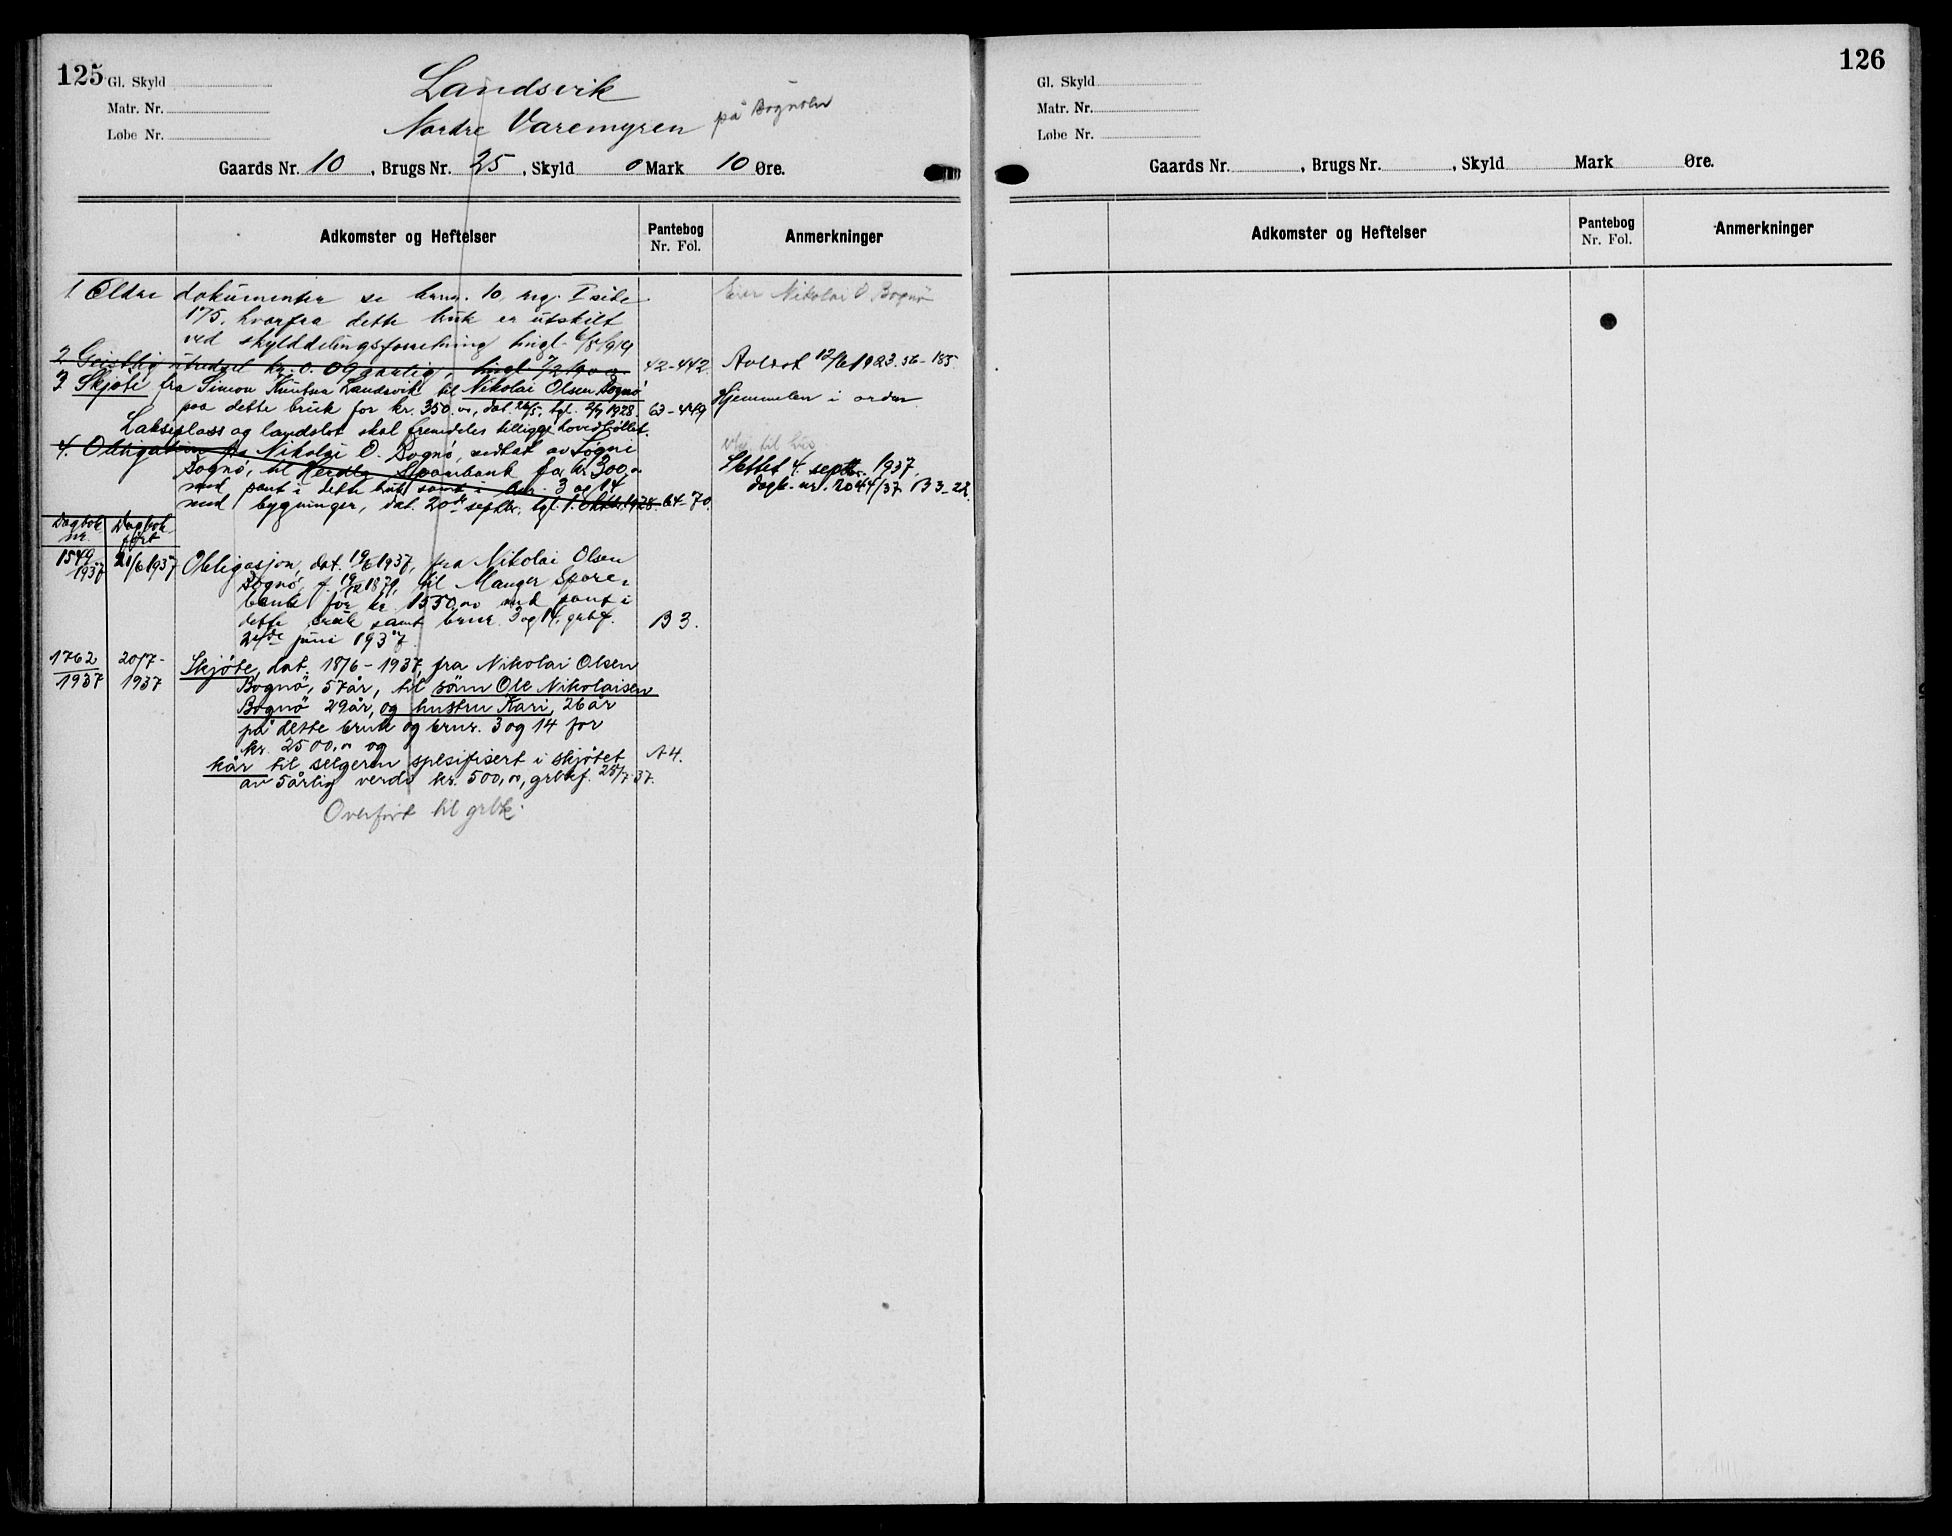 125
Gl. Skyld
Matr. Nr.
Løbe Nr.
Landsvik
Nordre Varemyren på Bognøen
Gaards Nr. 10, Brugs Nr. 25, Skyld 0 Mark 10 Øre.
Adkomster og Heftelser
Pantebog
Nr. Fol.
Anmerkninger
1 Eldre dokumenter se brnr. 10, reg. I side
175, hvorfra dette bruk er utskilt
ved skylddelingsforretning tingl. 6/8 1919
Eier Nikolai O Bognø
2 Geistlig utredsel kr. 0.09 aarlig, tingl 7/2 1900 42-442 Avløst 12/6 1923 56-185.
3 Skjøte fra Simon Knutsen Landsvik til Nikolai Olsen Bognø
paa dette bruk for kr. 350.00, dat. 26/5, tgl. 2/7 1928. 63-449 Hjemmelen i orden
Lakseplass og landslot skal fremdeles tilligge hovedbøllet.
4. Obligation fra Nikolai O. Bognø, vedtat av Søgni
Bognø, til Herdla Sparebank for kr. 300,00
med pant i dette bruk samt i bnr. 3 og 14
med bygninger, dat. 20de septbr., tgl. 1. oktbr. 1928. 64-70.
Slettet 4. septbr. 1937.
dagb. nr. 2044/37 B 3-22.
Dagbok nr. Dagbok ført
1549/1937 21/6 1937 Obligasjon, dat. 19/6 1937, fra Nikolai Olsen
Bognø, f. 19/12 1879, til Manger Spare-
bank for kr. 1550,00 med pant i
dette bruk samt brnr. 3 og 14, grbf. B 3.
21de juni 1937
1762/1937 20/7-1937 Skjøte, dat. 18/6-1937, fra Nikolai Olsen
Bognø, 57 år, til sønn Ole Nikolaisen
Bognø 29 år, og hustru Kari, 26 år
på dette bruk og brnr. 3 og 14 for
kr. 2500,00 og
kår til selgeren spesifisert i skjøtet A 4.
av 5årlig verdi kr. 500,00, grbkf. 25/7-37.
Overført til grbk.
126
Gl. Skyld
Matr. Nr.
Løbe Nr.
Gaards Nr. , Brugs Nr. , Skyld Mark Øre.
Adkomster og Heftelser
Pantebog
Nr. Fol.
Anmerkninger